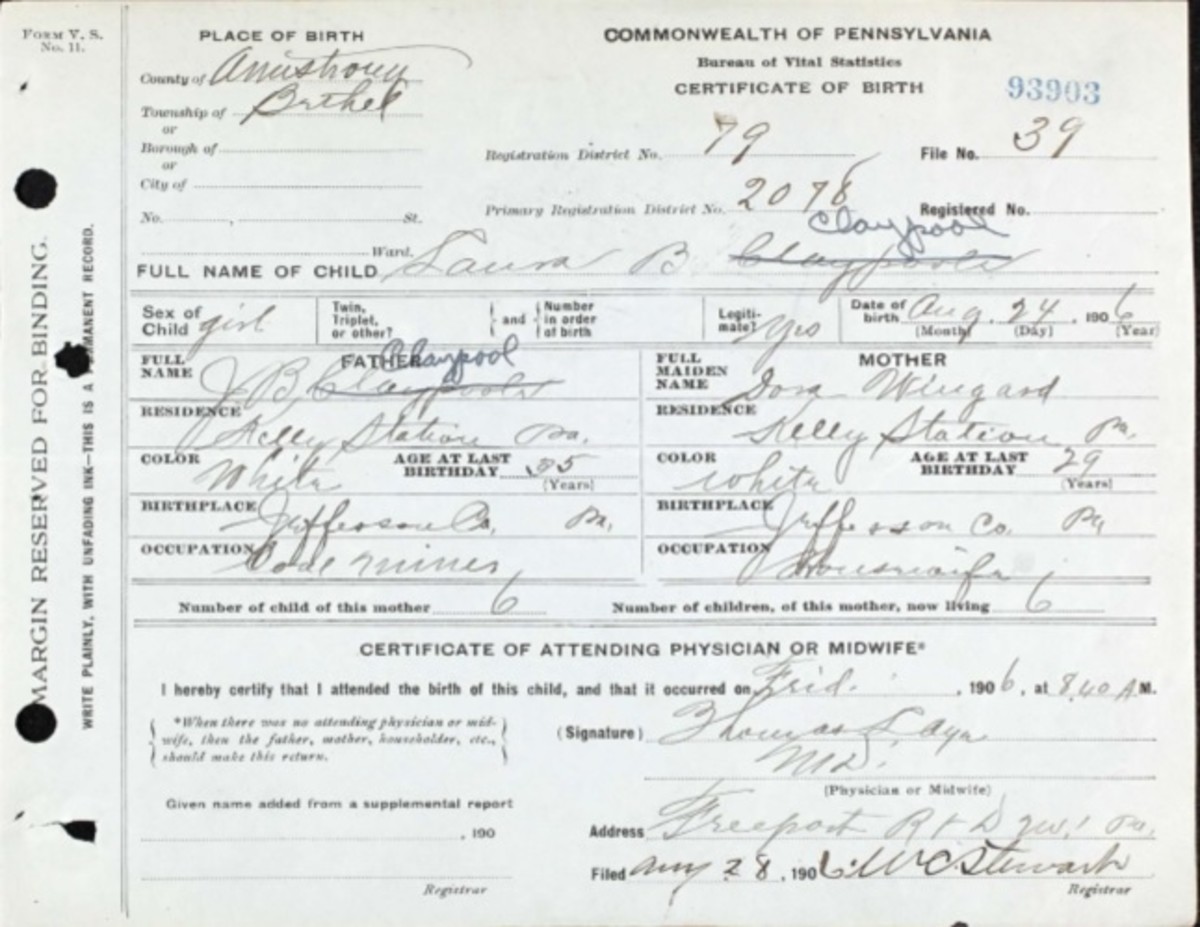 FORM V. S. No. 11.
PLACE OF BIRTH
County of Armstrong
Township of Bethel
or
Borough of
or
City of
No. , St.
Ward.
COMMONWEALTH OF PENNSYLVANIA
Bureau of Vital Statistics
CERTIFICATE OF BIRTH
93903
Registration District No. 79 File No. 39
Primary Registration District No. 2078 Registered No.
Claypool
FULL NAME OF CHILD Laura B Claypoole
Sex of Child girl Twin, Triplet, or other? and Number in order of birth Legitimate? Yes Date of birth Aug. 24, 1906
(Month) (Day) (Year)
FATHER Claypool
FULL NAME J B Claypoole
RESIDENCE Kelly Station Pa.
COLOR White AGE AT LAST BIRTHDAY 35
(Years)
BIRTHPLACE Jefferson Co, Pa,
OCCUPATION Coal miner
MOTHER
FULL MAIDEN NAME Dora Wingard
RESIDENCE Kelly Station Pa.
COLOR White AGE AT LAST BIRTHDAY 29
(Years)
BIRTHPLACE Jefferson Co. Pa
OCCUPATION Housewife
Number of child of this mother 6 Number of children, of this mother, now living 6
CERTIFICATE OF ATTENDING PHYSICIAN OR MIDWIFE*
I hereby certify that I attended the birth of this child, and that it occurred on Frid. , 1906, at 8,40 A.M.
*When there was no attending physician or midwife, then the father, mother, householder, etc., should make this return.
(Signature) Thomas
M.D.
(Physician or Midwife)
Given name added from a supplemental report
, 190
Registrar
Address Freeport R F D Pa,
Filed Aug 28, 1906. W C Stewart
Registrar
MARGIN RESERVED FOR BINDING.
WRITE PLAINLY, WITH UNFADING INK—THIS IS A PERMANENT RECORD.